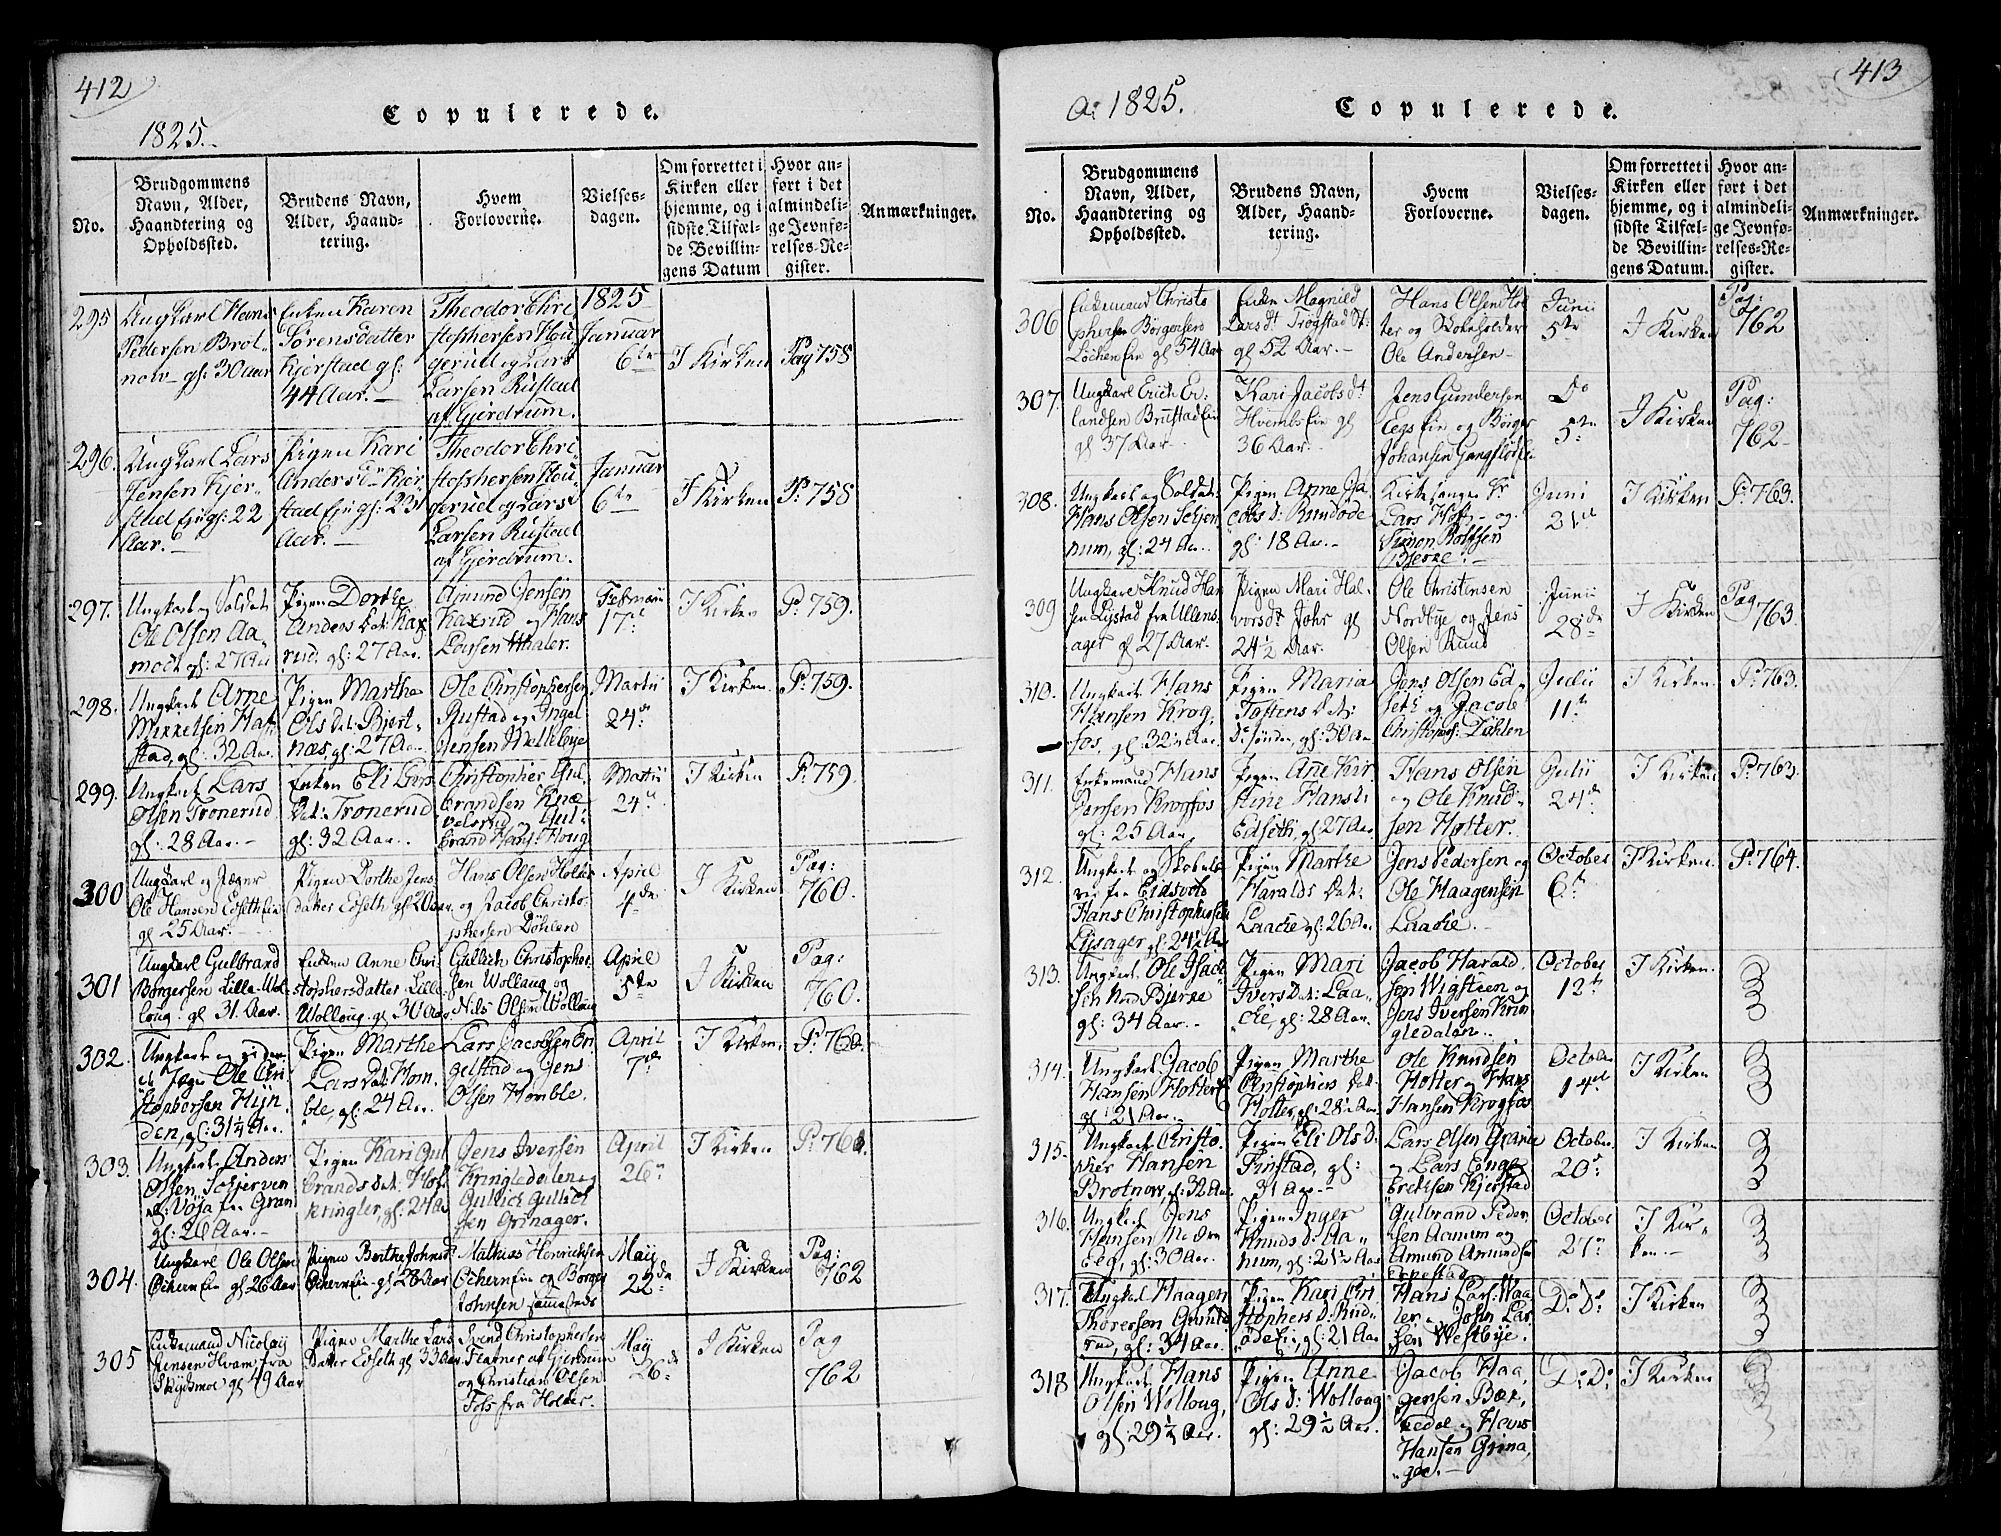 412
Copulerede.
1825.
No.
Brudgommens
Navn, Alder,
Haandtering og
Opholdssted.
Brudens Navn,
Alder, Haand-
tering.
Hvem
Forloverne.
Vielses-
dagen.
Om forrettet i
Kirken eller
hjemme, og i
sidste Tilfæl-
de Bevillin-
gens Datum
Hvor an-
ført i det
almindeli-
ge Jevnfø-
relses-Re-
gister.
Anmærkninger.
295
Ungkarl Hans
Pedersen Brot-
now gl: 30 aar
Enken Karen
Sørensdatter
Kjerstad gl:
44 Aar.
Theodor Chri
stophersen Hou
gerud og Lars
Larsen Rustad
af Gjerdrum.
1825
Januar
6te
I Kirken
Pag 758
296.
Ungkarl Lars
Jensen Kjer-
stad Ej: gl: 22
Aar.
Pigen Kari
Andersdr Kjer
stad Ej: gl: 23
Aar.
Theodor Chri
stophersen Hou
gerud og Lars
Larsen Rustad
af Gjerdrum.
Januar
6te
I Kirken
P: 758
297.
Ungkarl og Soldat
Ole Olsen Aa
modt gl: 27 Aar
Pigen Dorthe
Anders Dat:
rud. gl: 27 Aar.
Amund Jensen
og Hans
Larsen Haler.
Februarii
17de
I Kirken
P: 759.
298.
Ungkarl Arne
Mikkelsen
stad, gl: 32 Aar
Pigen Marthe
Ols Dat: Bjert-
næs, gl: 27 Aar
Ole Christophersen
Rustad og Ingel
Jensen Mellebye
Martii
24de
I Kirken.
P: 759.
299.
Ungkarl Lars
Olsen Tronerud
gl: 28 Aar.
Enken Eli Lars
Dat: Tronerud
gl: 32 Aar.
Christopher Gul
brandsen
og Gul
brand Hans: Houg
Martii
24de
I Kirken
P: 759.
300
Ungkarl og Jæger
Ole Hansen Edseth Ein
gl 25 Aar.
Pigen Dorthe Jens
datter Edseth gl 20 Aar.
Hans Olsen Holter
og Jacob Christo
phersen Döhlen
April
4de
I Kirken
Pag:
760.
301
Ungkarl Gulbrand
Borgersen Lille Wol-
loug. gl 31. Aar.
Enken Anne Chri
stophersdatter Lille
Wolloug. gl 30 Aar
Gullich Christopher
sen Wolloug og
Nils Olsen Wolloug
April
5te
I Kirken
Pag:
760.
302.
Ungkarl og
Jæger Ole Chri
stophersen
den, gl: 31¼ Aar.
Pigen Marthe
Lars Dat: Horn
ble, gl: 24 Aar.
Lars Jacobsen
og Jens
Olsen Homble.
April
7de
I Kirken.
P: 760.
303.
Ungkarl Anders
Olsen Schjerven
fra Gran
gl: 26 Aar.
Pigen Kari Gul
brands Dat:
Kringler, gl: 24 Aar
Jens Iversen
Kringledalen og
Gullich Gullich
sen Grinager.
April
26de
I Kirken
P: 761.
304.
Ungkarl Ole Olsen
Ochern Ein gl 26 Aar
Pigen Berthe Johnsd
Ochern Ein gl 28 Aar
Mathias Henricksen
Ochern Ein og Borger
Johnsen sammesteds
May
22de
I Kirken
Pag:
762
305
Enkemand Nicolay
Jensen Hvam fra
Skydsmoe gl 49 Aar
Pigen Marthe Lars
Datter Edseth gl 33 Aar
Svend Christophersen
af Gjerdrum
og Christian Olsen
Foss fra Holter.
May
26de
I Kirken
Pag
762
413
Ao 1825.
Copulerede.
No.
Brudgommens
Navn, Alder,
Haandtering og
Opholdssted.
Brudens Navn,
Alder, Haand-
tering.
Hvem
Forloverne.
Vielses-
dagen.
Om forrettet i
Kirken eller
hjemme, og i
sidste Tilfæl-
de Bevillin-
gens Datum.
Hvor an-
ført i det
almindeli-
ge Jevnfø-
relses-Re-
gister.
Anmærkninger.
306
Enkemand Christo
phersen Börgersen
Løchen Ein gl 54 Aar
Enke Magnild
Lars dt Trøgstad
gl 52 Aar.
Hans Olsen Hol
ter og Skoleholder
Ole Andersen
Junii
5te
I Kirken
Pag:
762
307.
Ungkarl Erich Er
landsen Brustad Ein
gl 37 Aar.
Kari Jacobs dt
Hvembs Ein gl
36 Aar.
Jens Gundersen
Eegs Ein og Börger
Johansen
Do
5te
I Kirken
Pag:
762
308.
Ungkarl og Soldat
Hans Olsen Schjen
num, gl: 24 Aar.
Pigen Anne Ja
cobs d: Rudöde
gl: 18 Aar.
Kirkesanger Hr
Lars Holt og
Simon Boltsen
Bjerke.
Juni
21de
I Kirken
P: 763.
309
Ungkarl Knud Han
sen Lystad fra Ullens
ager gl 27 Aar.
Pigen Mari Hal
vorsdt Johr gl
24½ Aar.
Ole Christensen
Nordbye og Jens
Olsen Ruud
Junii
28de
I Kirken
Pag
763.
310.
Ungkarl Hans
Hansen Krog-
fos, gl: 32¼ Aar.
Pigen Maria
Tostens Dat:
gl: 30 Aar
Jens Olsen Ed-
seth og Jacob
Christoph: Döhlen
Julii
11te
I Kirken.
P: 763.
311.
Enkemand Hans
Jensen Krogfos
gl: 25 Aar
Pigen Ane Kir
stine Hansd:
Edseth, gl: 27 Aar
Hans Olsen
og Ole Knud-
sen Holter.
Julii
24de
I Kirken.
P: 763.
312.
Ungkarl og
fra Eidsvold
Hans Christophersen
Lysager gl: 24½ Aar
Pigen Marthe
Haralds Dat:
Laache gl: 26 Aar
Jens Pedersen og
Ole Haagensen
Laache.
October
6te
I Kirken.
P: 764.
313.
Ungkarl Ole Isach
sen Bjerke
gl: 34 Aar.
Pigen Mari
Ivers Dat: Laa-
che, gl: 28 Aar.
Jacob Harald
sen Wigsteen og
Jens Iversen Krin
gledalen.
October
12te
I Kirken.
314.
Ungkarl Jacob
Hansen Holter
gl: 21 Aar.
Pigen Marthe
Christophers Dat:
Holter, gl: 28¼ Aar.
Ole Knudsen
Holter og Hans
Hansen Krogfos
October
I Kirken
315.
Ungkarl Christo
pher Hansen
Brotnow, gl: 32 Aar
Pigen Eli Ols D:
Finstad, gl:
31 Aar.
Lars Olsen
og Lars Engel
brektsen Kjerstad
October
20de
I Kirken
316.
Ungkarl Jens
Hansen Neden
Eeg, gl: 30 Aar.
Pigen Inger
Knuds d: Aa-
num, gl: 21½ Aar
Gulbrand Peder
sen Aanum og
Amund Amundsen
October
27de
I Kir-
ken.
317.
Ungkarl Haagen
Thoresen
rud, gl: 34 Aar.
Pigen Kari Chri
stophers D: Rud-
öde Ein, gl: 21 Aar
Hans Lars: Waa
ler og John Lar
sen Westbye.
Do Do
I Kirken
318
Ungkarl Hans
Olsen Wolloug,
gl: 29½ Aar.
Pigen Anne
Ols D: Wolloug
gl: 29½ Aar.
Jacob Haa
gensen Bæk
kedal og Hans
Hansen Grina,
ger.
Do Do
I Kirken